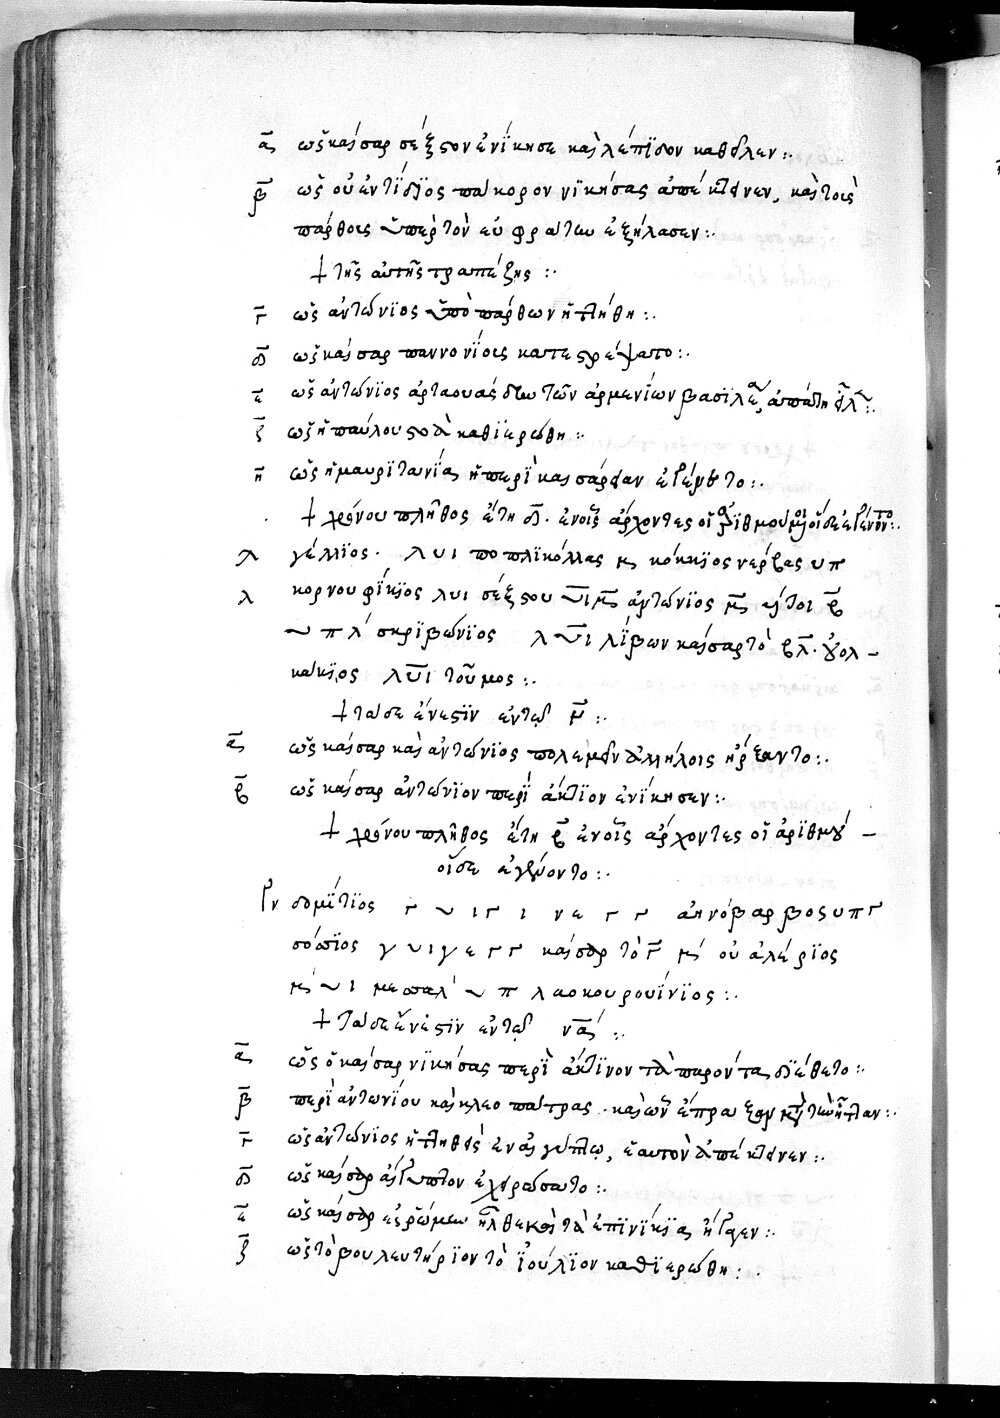 α ὡς καῖσαρ σέξστον ἐνίκησε καὶ λέπιδον καθεῖλεν:.
β ὡς οὐεντίδιος πάκορον νικήσας ἀπέκτεινεν, καὶ τοὺς
πάρθους ὑπὲρ τὸν εὐφράτην ἐξήλασεν:.
+ τῆς αὐτῆς τραπέζης:.
γ ὡς ἀντώνιος ὑπὸ πάρθων ἡττήθη:.
δ ὡς καῖσαρ παννονίους κατεστρέψατο:.
ε ὡς ἀντώνιος ἀρταουάσδην τῶν ἀρμενίων βασιλέα, ἀπάτη εἷλε:.
ζ ὡς ἡ παύλου στοὰ καθιερώθη:.
η ὡς ἡ μαυριτανία ἡ περὶ καισάρειαν ἐγένετο:.
+ χρόνου πλῆθος ἔτη δ. ἐν οἷς ἄρχοντες οἱ ἀριθμούμενοι οἵδε ἐγένοντο:.
λ γέλλιος. λυι ποπλικόλας κ κόκκιος νερβας υπ
λ κορνουφίκιος λυι σέξτου υι μ ἀντώνιος μ
υ π λ σκριβώνιος λ υι λίβων καῖσαρ τὸ β λ. οὐολ-
κάκιος λ υι τοῦμος:.
+ τάδε ἔνεστιν ἐν τῶ ν:.
α ὡς καῖσαρ καὶ ἀντώνιος πολεμεῖν ἀλλήλοις ἤρξαντο:.
β ὡς καῖσαρ ἀντώνιον περὶ ἄκτιον ἐνίκησεν:.
+ χρόνου πλῆθος ἔτη β ἐν οἷς ἄρχοντες οἱ ἀριθμού-
οἵδε ἐγένοντο:.
Γν δομίτιος γ υι γι νε γ γ ἀηνόβαρβος υπ γ
σόσσιος γ υι γ ε γ γ καῖσαρ τὸ γ μ οὐαλέριος
μ υι μεσσαλ υ π λ αοκουρουίνιος:.
+ Τάδε ἔνεστιν ἐν τῶ να:.
α ὡς ὁ καῖσαρ νικήσας περὶ ἄκτινον τὰ παρόντα διέθετο:.
β περὶ ἀντωνίου καὶ κλεοπάτρας. καὶ ὧν ἔπραξαν μετὰ τὴν ἧτταν:.
γ ὡς ἀντώνιος ἡττηθεὶς ἐν αἰγύπτω, ἑαυτὸν ἀπέκτεινεν:.
δ ὡς καῖσαρ αἴγυπτον ἐχειρώσατο:.
ε ὡς καῖσαρ ἐς ῥώμην ἦλθε καὶ τὰ ἐπινίκια ἤγαγεν:.
ζ ὡς τὸ βουλευτήριον τὸ ἰούλιον καθιερώθη:.